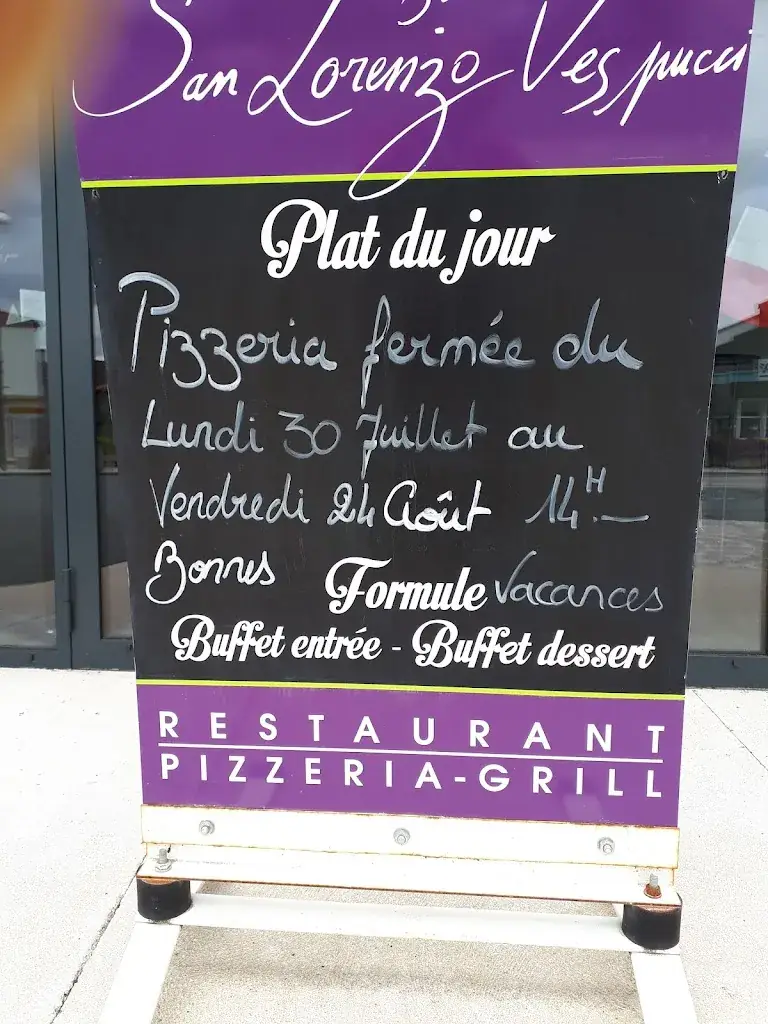 San Lorenzo Vespucci
Plat du jour
Pizzeria fermée du
Lundi 30 Juillet au
Vendredi 24 Août 14H.-
Bonnes Formule Vacances
Buffet entrée - Buffet dessert
RESTAURANT
PIZZERIA-GRILL